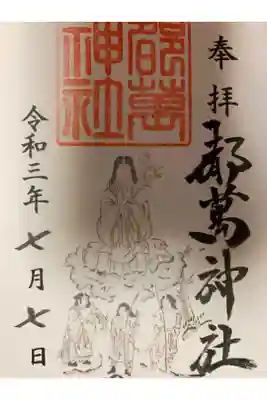 奉拝
都萬神社
都萬神社
令和三年七月七日